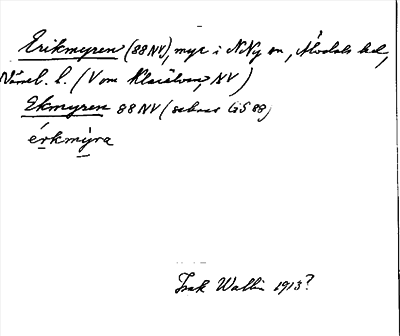 Erikmyren (88 NV), myr i N Ny sn, Älvdals hd,
Värml. l. (V om Klarälven, NV)
Ekmyren 88 NV (saknar GS 88)
érkmỳra
Isak Wallin 1913?